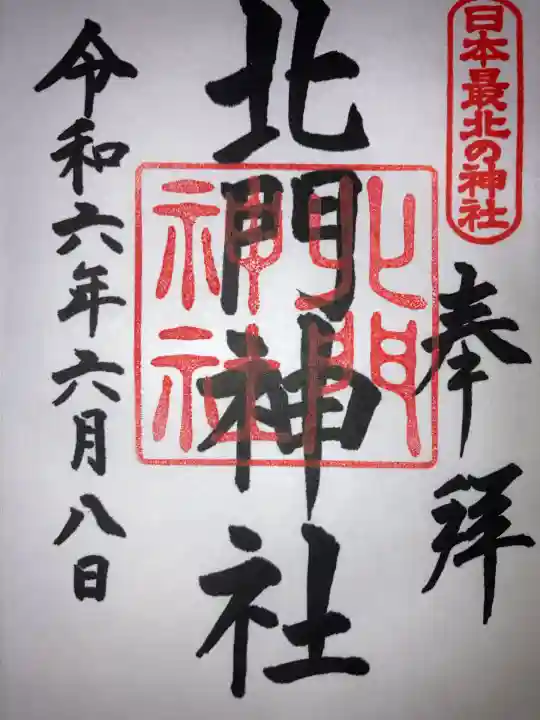 日本最北の神社
奉拜
北門神社
北門
神社
令和六年六月八日